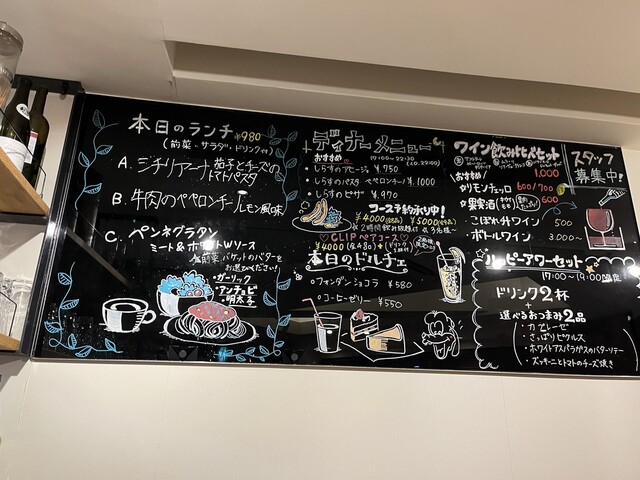 本日のランチ ¥980
(前菜・サラダ・ドリンク付)
A. シチリアーナ 茄子とチーズの
トマトパスタ
B. 牛肉のペペロンチーノ レモン風味
C. ペンネグラタン
ミート&ホワイトWソース
※前菜 バケットのバターを
お選びください!
・ガーリック
・アンチョビ
・明太子
ディナーメニュー
おすすめ 17:00~22:30
(L.O. 22:00)
・しらすのアヒージョ ¥750
・しらすのパスタ ペペロンチーノ ¥1,000
・しらすのピザ ¥970
コース予約承り中!
¥4000 ¥5000
※2時間飲み放題付
♡CLIPペアコース♡
¥4000
本日のドルチェ
○フォンダンショコラ ¥580
○コーヒーゼリー ¥550
ワイン飲み比べセット
1,000
おすすめ!
☆リモンチェッロ 600/700
☆果実酒 600
・こぼれ升ワイン 500
・ボトルワイン 3,000~
スタッフ
募集中!
ハッピーアワーセット
17:00~19:00限定
ドリンク2杯
+
選べるおつまみ2品
・カプレーゼ
・さっぱりピクルス
・ホワイトアスパラガスのバターソテー
・ズッキーニとトマトのチーズ焼き